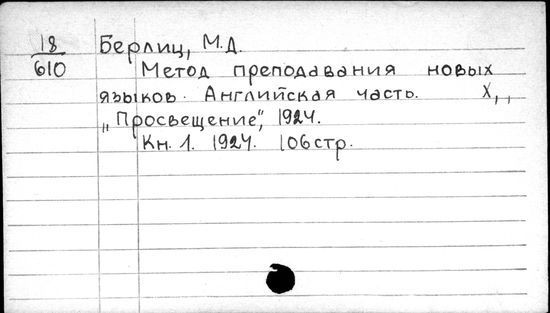 18
610
Берлиц, М.Д.
Метод преподавания новых
языков. Английская часть. Х,,
„Просвещение", 1924.
Кн. 1. 1924. 106 стр.